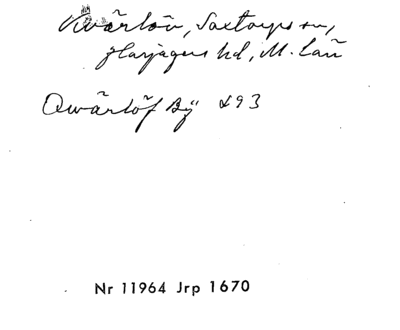 Kvärlöv, Saxtorps sn,
Harjagers hd, M. län
Qwärlöf By 293
Nr 11964 Jrp 1670